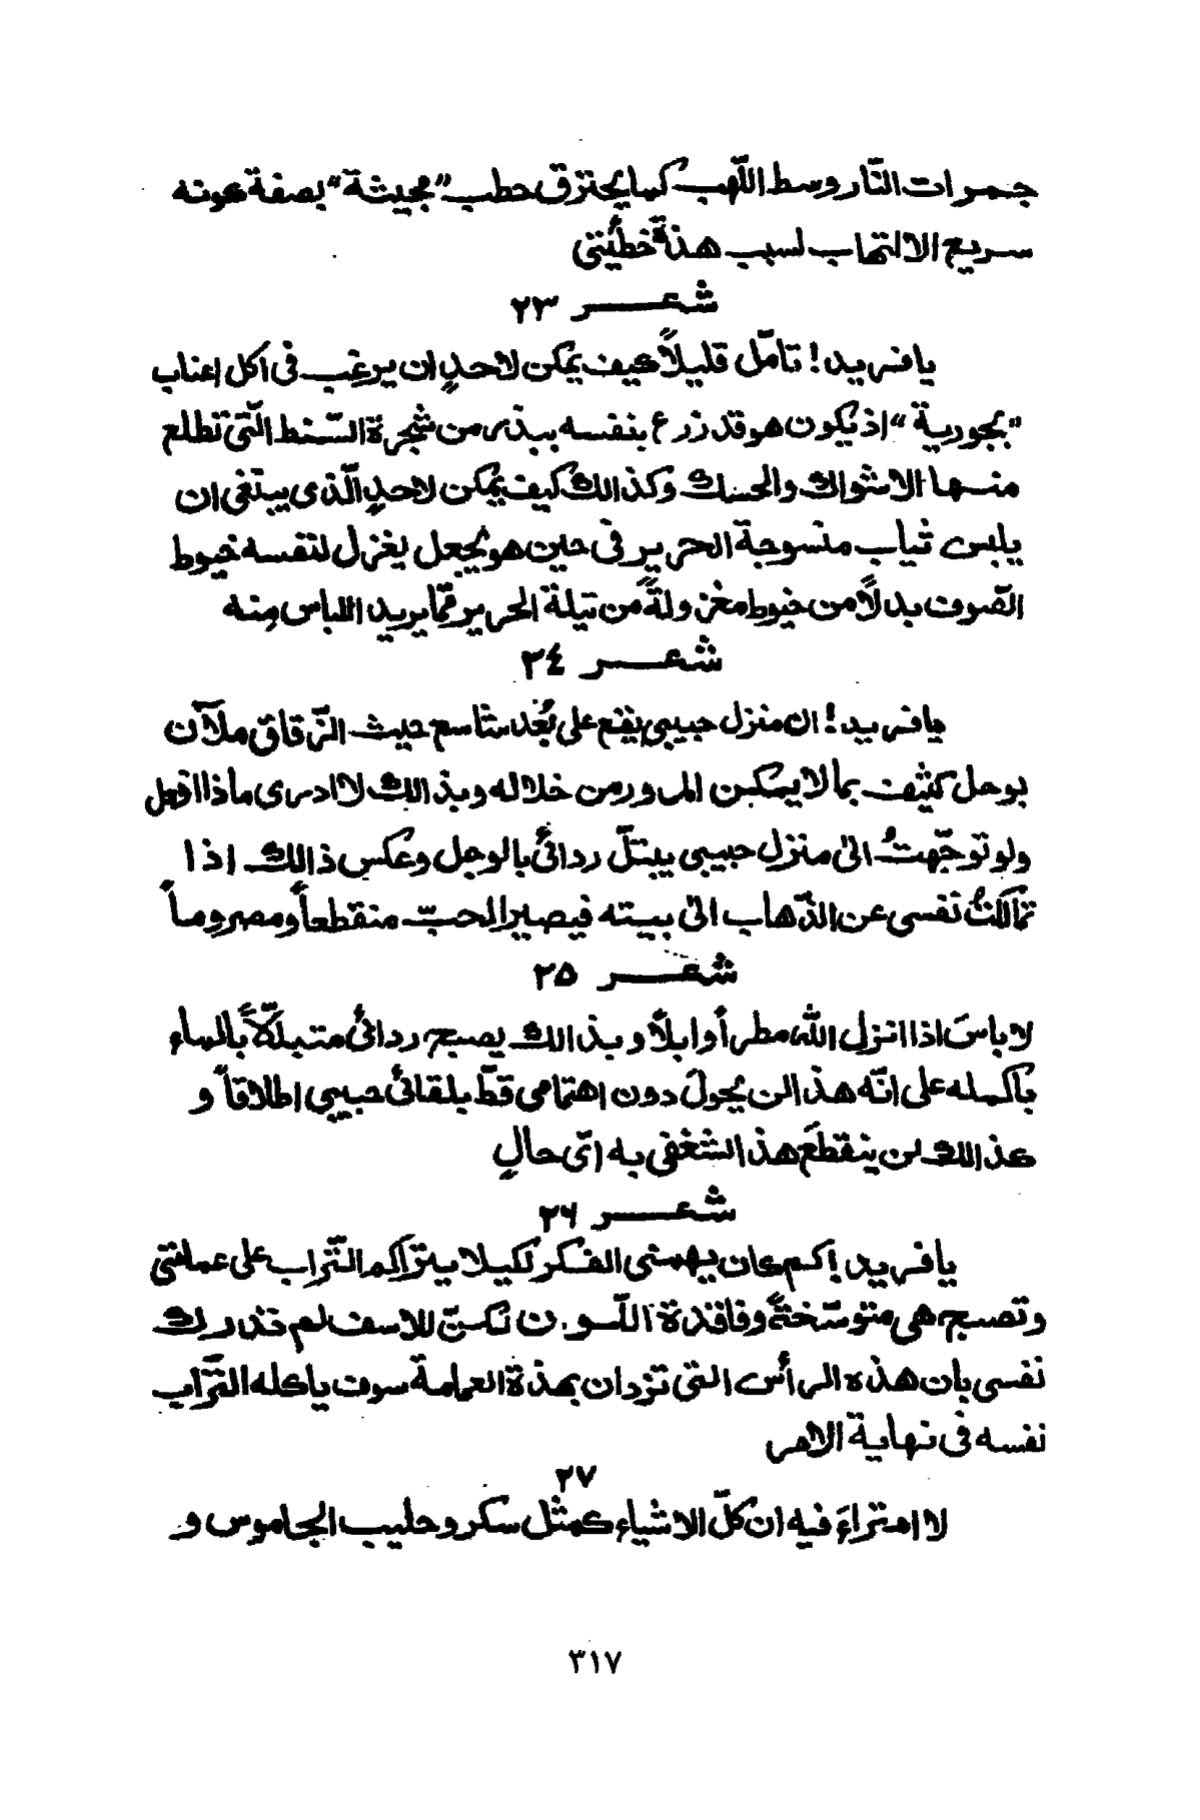 جمرات النّار وسط اللّهب كما يحترق حطب "مجيثة" بصفة كونه
سريع الالتهاب لسبب هذة خطأيتي
شعر ٢٣
يا فريد! تامّل قليلاً كيف يمكن لاحدٍ ان يرغب فى اكل اعناب
"بجورية" اذ يكون هو قد زرع بنفسه ببذر من شجرة السّنط الّتى تطلع
منها الاشواك والحسك وكذالك كيف يمكن لاحدٍ الّذى يبتغى ان
يلبس ثياب منسوجة الحرير فى حين هو يجعل يغزل لنفسه خيوط
الصّوف بدلاً من خيوط مغزولةً من تيلة الحرير ممّا يريد اللباس منه
شعر ٢٤
يا فريد! ان منزل حبيبى يقع على بُعد شاسع حيث الزّقاق ملآن
بوحل كثيف بما لا يمكن المرور من خلاله وبذالك لا ادرى ماذا افعل
ولو توجّهتُ الىٰ منزل حبيبى يبتلّ ردائى بالوحل وعكس ذالك اذا
تمالكتُ نفسى عن الذّهاب الىٰ بيته فيصير الحبّ منقطعاً ومصروماً
شعر ٢٥
لا باسَ اذا انزل الله مطراً وابلاً وبذالك يصبح ردائى متبلّلاً بالماء
بأكمله على انّه هذا لن يحول دون اهتمامى قطّ بلقائى حبيبى اطلاقاً و
كذالك لن ينقطع هذا الشغفى به اىّ حالٍ
شعر ٢٦
يا فريد! كم كان يهمنى الفكر لكيلا يتراكم التّراب على عمامتى
وتصبح هى متوسّخةً وفاقدة اللّون لكنّ للاسف لم تدرك
نفسى بان هذه الرأس التى تزدان بهذة العمامة سوف ياكله التّراب
نفسه فى نهاية الامر
٢٧
لا امتراءَ فيه ان كلّ الاشياء كمثل سكر وحليب الجاموس و
٣١٧